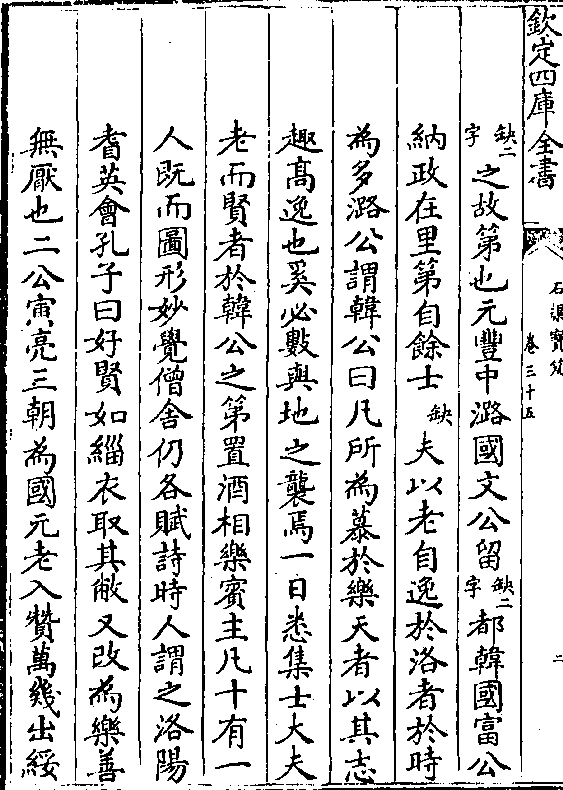 欽定四庫全書
石渠寶笈
卷三十五
二
缺二字之故第也元豐中潞國文公留缺二字都韓國富公
納政在里第自餘士缺夫以老自逸於洛者於時
為多潞公謂韓公曰凡所為慕於樂天者以其志
趣髙逸也奚必數與地之襲焉一日悉集士大夫
老而賢者於韓公之第置酒相樂賓主凡十有一
人既而圖形妙覺僧舍仍各賦詩時人謂之洛陽
耆英會孔子曰好賢如緇衣取其敝又改為樂善
無厭也二公寅亮三朝為國元老入贊萬幾出綏